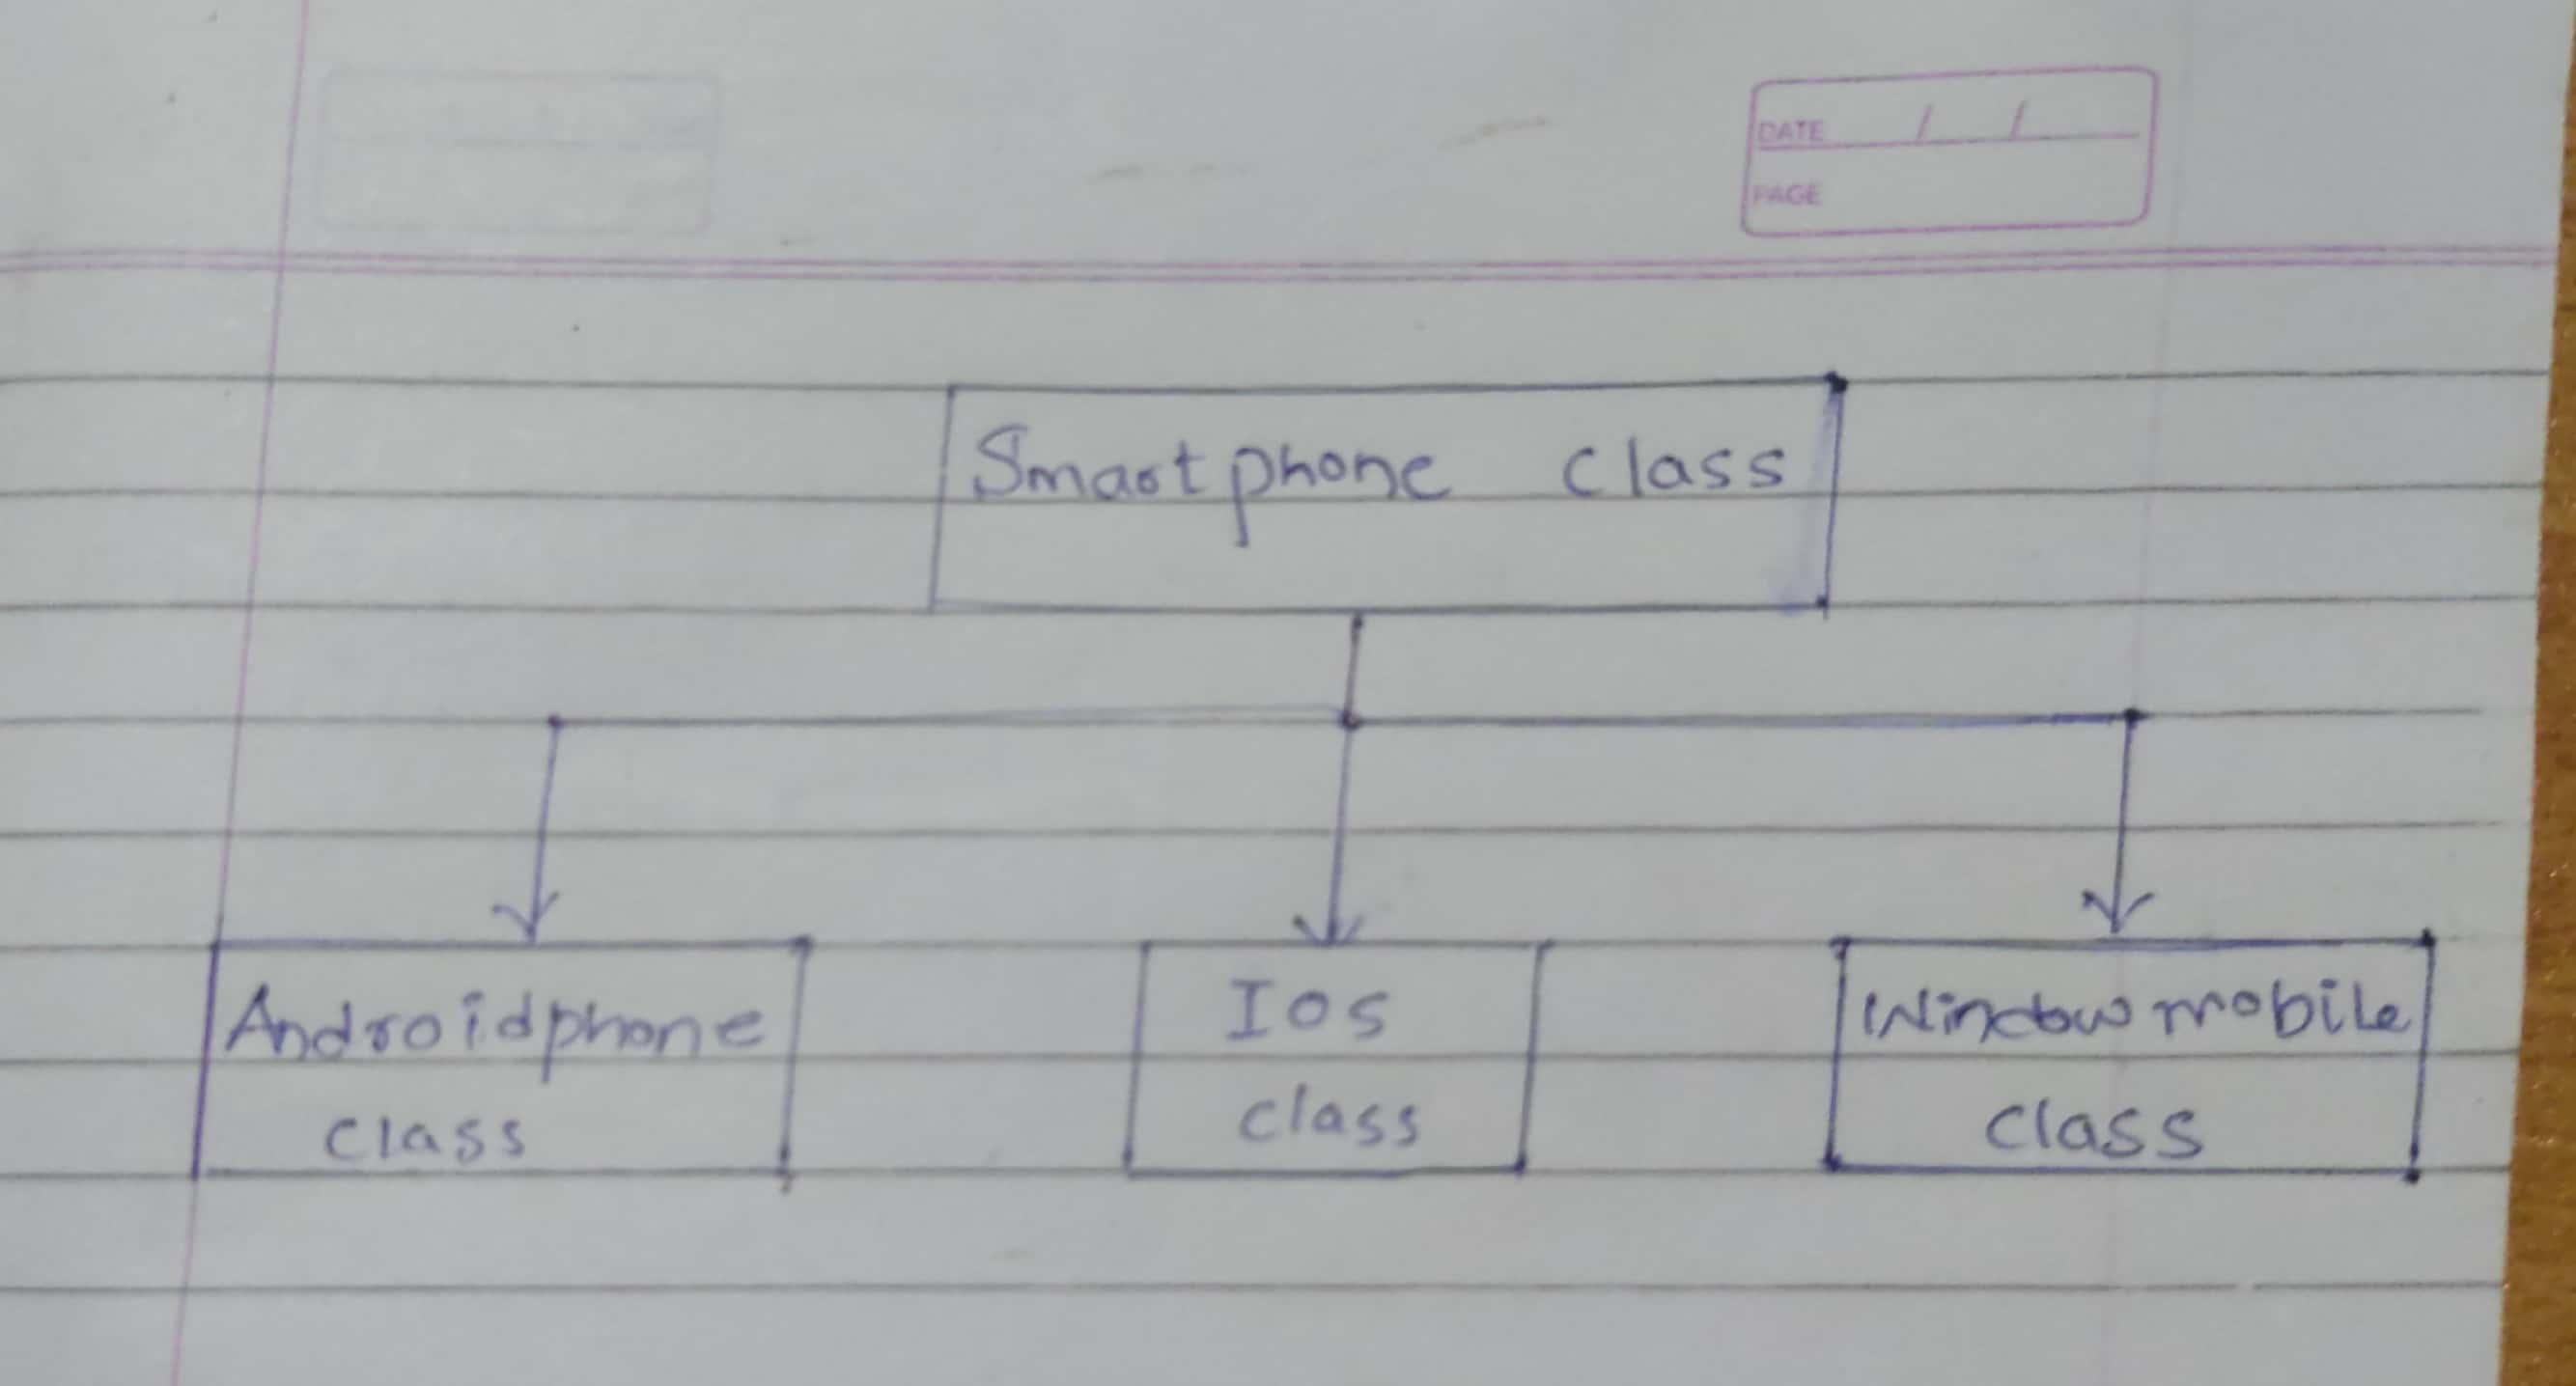 DATE / /
PAGE
Smartphone class
Androidphone
class
Ios
class
Windowmobile
class